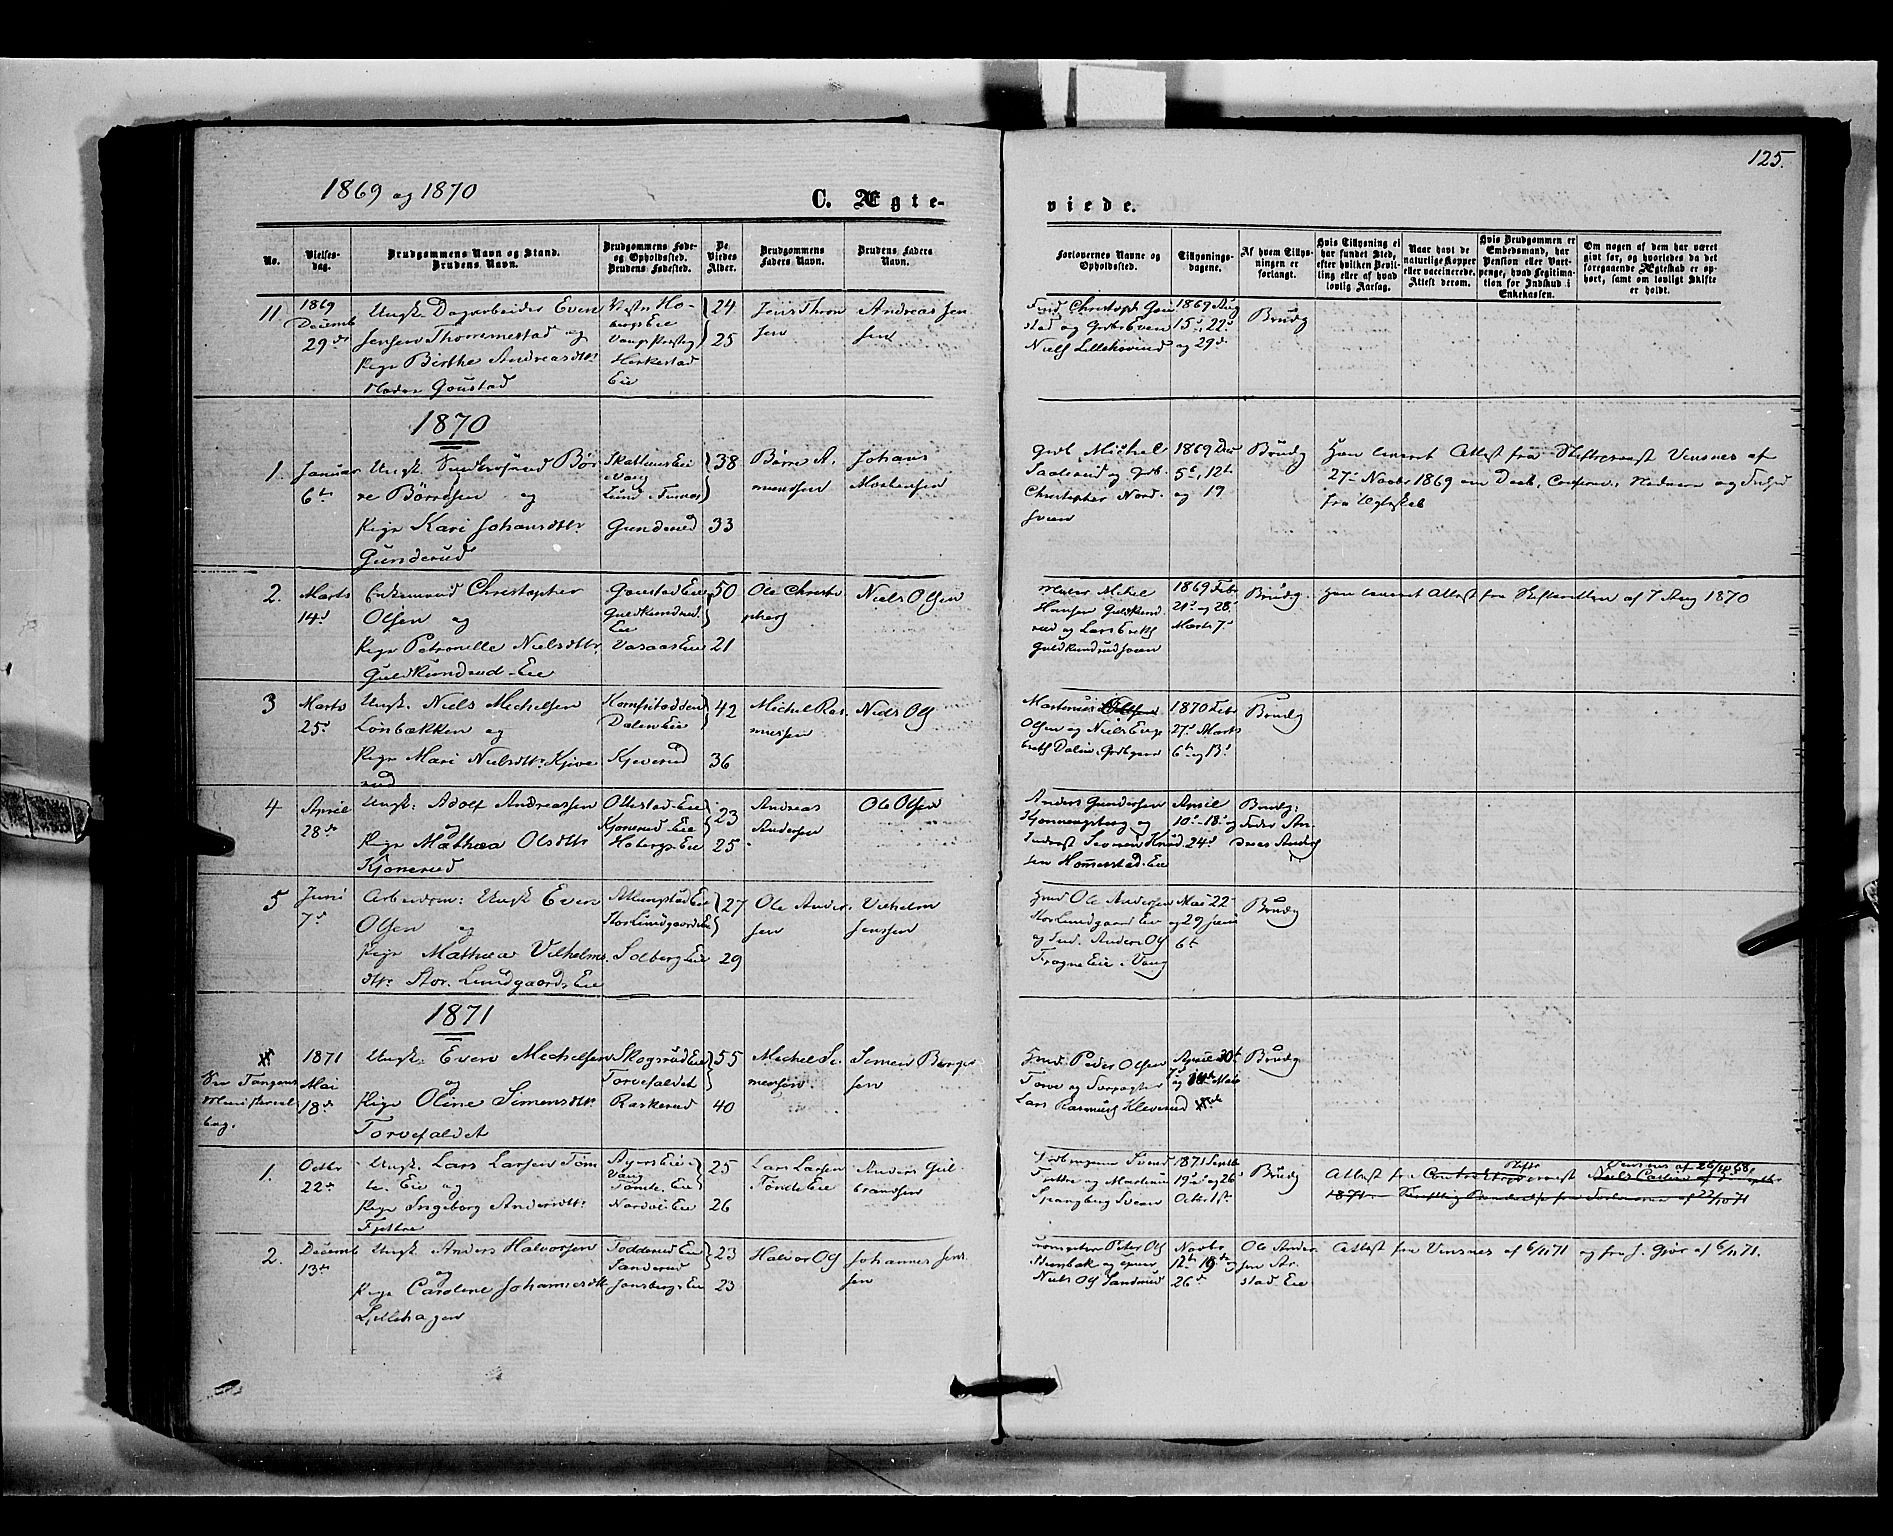 125.
1869 og 1870
C. Ægte-
viede.
No.
Vielses-
dag.
Brudgommens Navn og Stand.
Brudens Navn.
Brudgommens Føde-
og Opholdssted.
Brudens Fødested.
De
Viedes
Alder.
Brudgommens
Faders Navn.
Brudens Faders
Navn.
Forlovernes Navne og
Opholdssted.
Tillysnings-
dagene.
Af hvem Tillys-
ningen er
forlangt.
Hvis Tillysning ei
har fundet Sted,
efter hvilken Bevil-
ling eller af hvad
lovlig Aarsag.
Naar havt de
naturlige Kopper
eller vaccinerede.
Attest derom.
Hvis Brudgommen er
Embedsmand, har
Pension eller Vart-
penge, hvad Legitima-
tion for Indskud i
Enkekassen.
Om nogen af dem har været
gift før, og hvorledes da det
foregaaende Ægteskab er op-
hørt, samt om lovligt Skifte
er holdt.
11
1869
Decemb
29de
Ungk. Dagarbeider Even
Jensen Thommestad og
Pige Birthe Andreasdtr
Goustad
Vestr Ho-
bergs Eie
Herkestad
Eie
24
25
Jens Thron
sen
Andreas Jen
sen
Christoph Gou
stad og Even
Niels Lillehovind
1869 Aug
15d 22d
og 29d
Brudg
1870
1.
Januar
6te
Ungk. Bør
re Børresen og
Pige Kari Johansdtr
Gunderud
Skattums Eie
i Vang
Gunderud
38
33
Børre A.
mundsen
Johans
Mortensen
Grdb. Michel
Saalerud og Grdb.
Christopher Nord-
sveen
1869 Dec
5t, 12t
og 19
Brudg
Han leveret Attest fra Vensnes af
27d Novbr 1869 om Daab, Confirm:
fra Ægteskab
2.
Marts
14d
Enkemand Christopher
Olsen og
Pige Petronelle Nielsdtr
Guldkundrud-Eie
Goustad Eie
Guldkundrud
Eie
Vasaas Eie
50
21
Ole Christo
phers
Niels Olsen
Mikel
Hansen Guldkund
rud og Lars
Guldkundrudsveen
1869 Febr
21d og 28d
Marts 7d
Brudg.
Han leveret Attest fra Skifteretten af 7 Aug 1870
3
Marts
25d
Ungk. Niels Mechelsen
Lonbækken og
Pige Mari Nielsdtr Kjeve
rud
Dalen Eie
Kjeverud
42
36
Michel Ras
mussen
Niels Ols
Martinus
Olsen og Niels Enge
bretsen Dalen
1870 Febr
27d Marts
6te og 13d
Brudg
4
April
28de
Ungk: Adolf Andreassen
og
Pige Mathea Olsdtr
Kjonerud
Ottestad-Eie
Kjonerud Eie
Hobergs-Eie
23
25
Andreas
Andersen
Ole Olsen
Anders Gundersen
Kjonnengsberg og
Iversen Knud
sen Hommestad-Eie
April
10d-18d og
24d
Brudg:
Fader An-
dreas Anders
5
Juni
7d
Arbeidsm: Ungk Even
Olsen og
Pige Mathea Vilhelms
dtr Stor Lundgaards Eie
Stor Lundgaards Eie
Solberg Eie
27
29
Ole Ander-
sen
Vilhelm
Jenssen
Ole Andersen
Stor Lundgaard Eie
og Anders Ols
Frogne Eie i Vang
Mai 22-
og 29 Juni
6t
Brudg
1871
Tangens
bog.
1871
Mai
18de
Ungk: Even Mechelsen
og
Pige Oline Simensdtr
Torvefaldet
Skogsrud Eie
Torvefaldet
Raskerud
55
40
Mechel Si-
mensen.
Simen Berger
sen
Peder Olsen
Torve og Forpagter
Lars Rasmus Kleverud
April 30t
og 14de Mai
Brudg
1.
Octbr
22de
Ungk. Lars Larsen Tøm
te. Eie og
Pige Ingeborg Andersdtr
Fjettre
Agers Eie i
Vang
Tømte Eie
Nordvi-Eie
25
26
Lars Larsen
Tømte Eie
Anders Gul-
brandsen
Svend
Fjettre og Martinius
Spangberg Sveen
1871 Septbr
19d og 26
Octbr 1st
Brudg
Attest fra
Vensnes af 26/10 68,
2.
Decemb
13de
Ungk. Anders Halvorsen
og
Pige Caroline Johannesdtr
Lillehagen
Todderud Eie
Sanderud
Jonsbergs Eie
23
23
Halvor Ols
Johannes Jen-
sen
Peter Ols
Stenbæk og
Niels Ols Sandrud
Novbr.
12te 19de og
26d
Ole Ander-
sen Ar-
stad Eie
Attest fra Vensnes af 6/11 71 og fra J. Gjør af 6/11 71.